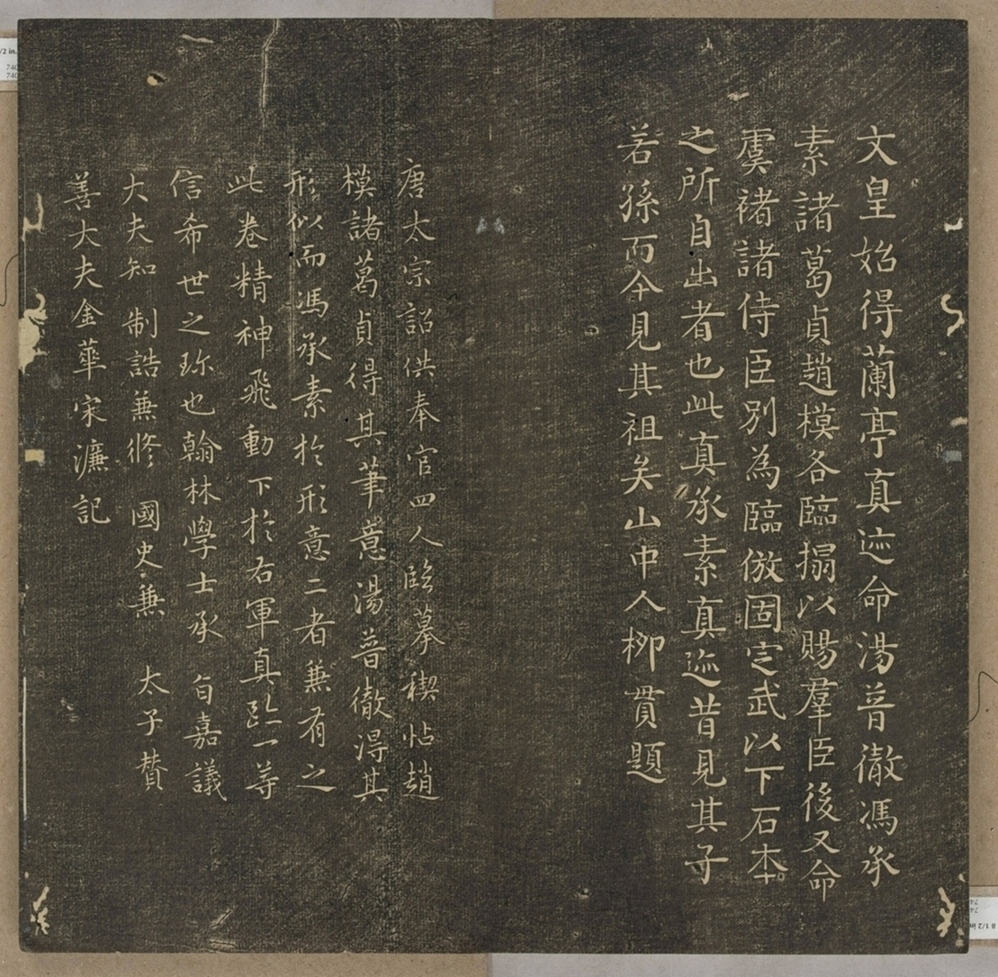 文皇始得蘭亭真迹命湯普徹馮承
素諸葛貞趙模各臨搨以賜羣臣後又命
虞褚諸侍臣別為臨倣固定武以下石本
之所自出者也此真承素真迹昔見其子
若孫而今見其祖矣山中人栁貫題
唐太宗詔供奉官四人臨摹禊帖趙
模諸葛貞得其筆意湯普徹得其
形似而馮承素於形意二者兼有之
此卷精神飛動下於右軍真跡一等
信希世之珎也翰林學士承 旨嘉議
大夫知 制誥兼修 國史兼 太子贊
善大夫金華宋濂記